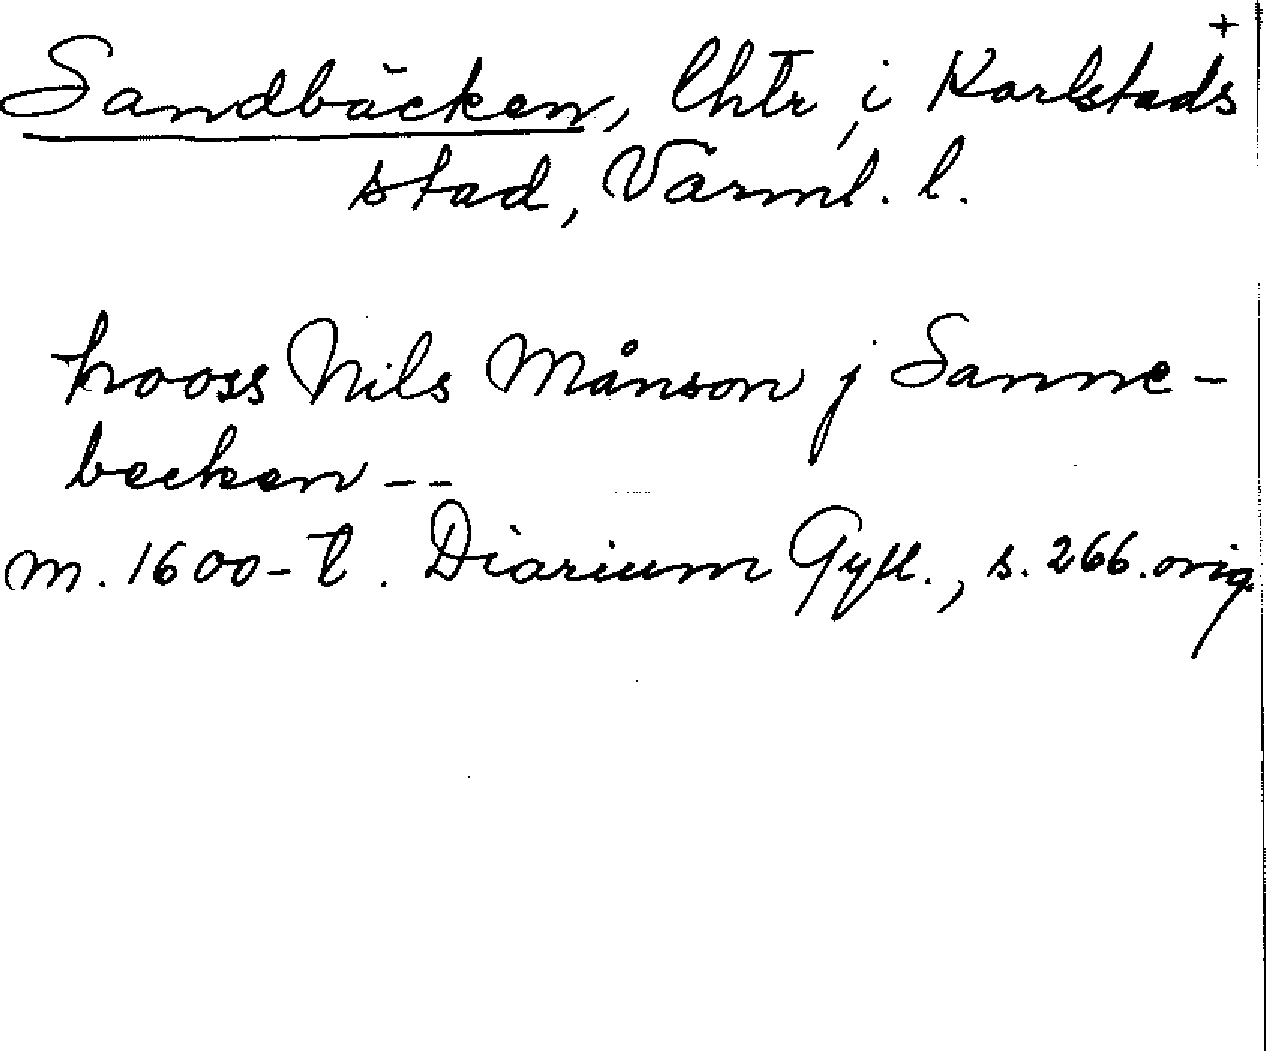 +
Sandbäcken, lhtr, i Karlstads
stad, Värml. l.
hooss Nils Månson j Sanne-
becken --
m. 1600-t. Diarium Gyll., s. 266. orig.